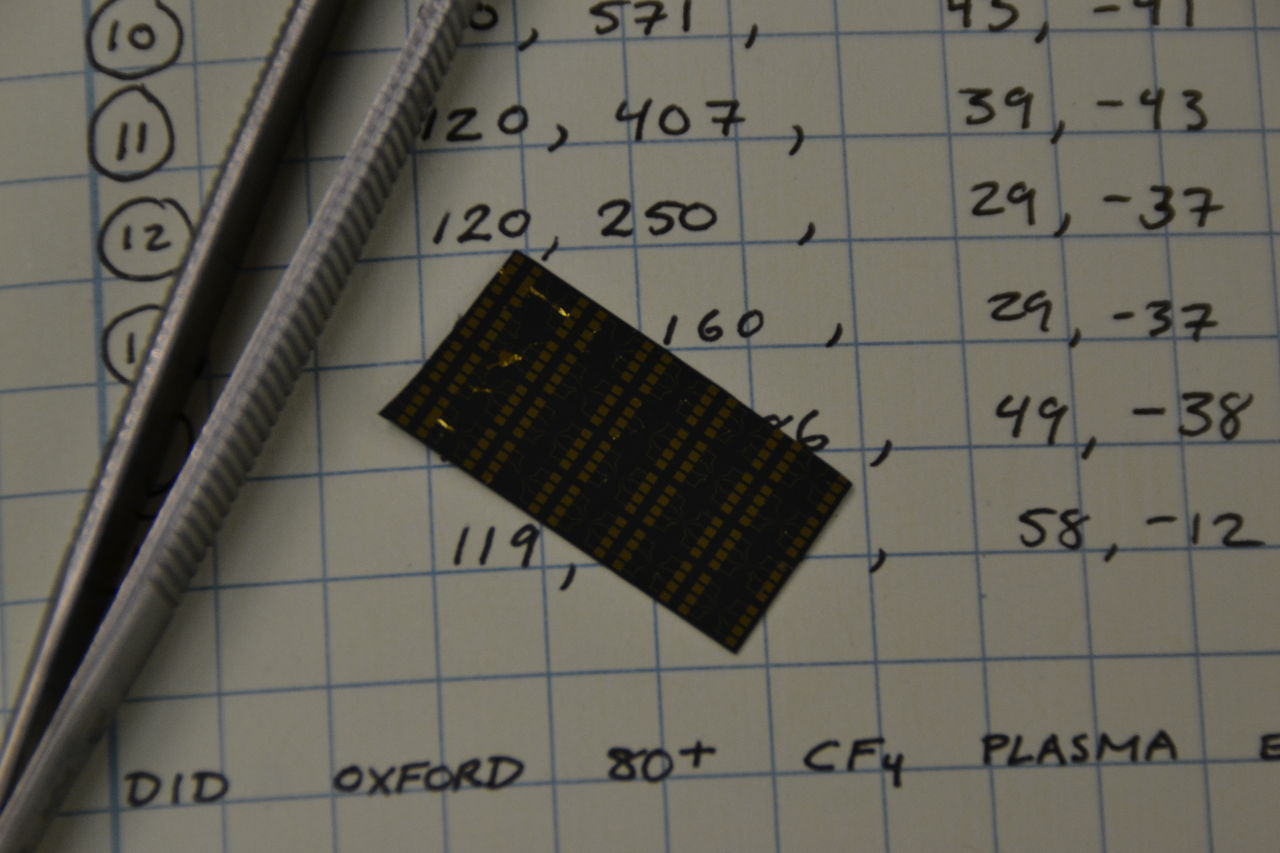 10 0, 571, 45, -41
11 120, 407, 39, -43
12 120, 250, 29, -37
160, 29, -37
6, 49, -38
119, , 58, -12
DID OXFORD 80+ CF4 PLASMA E